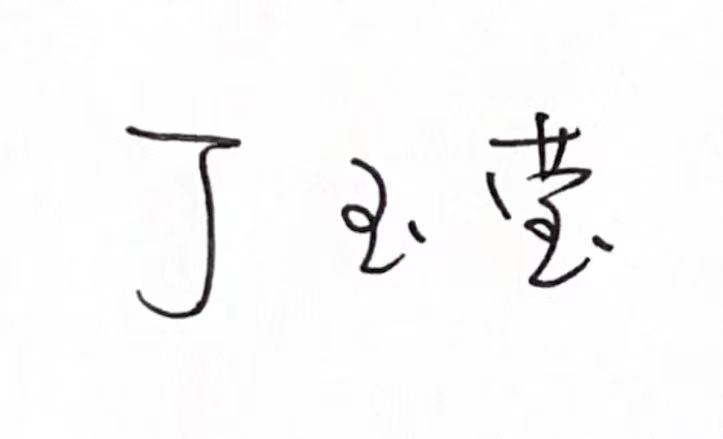 丁玉莹